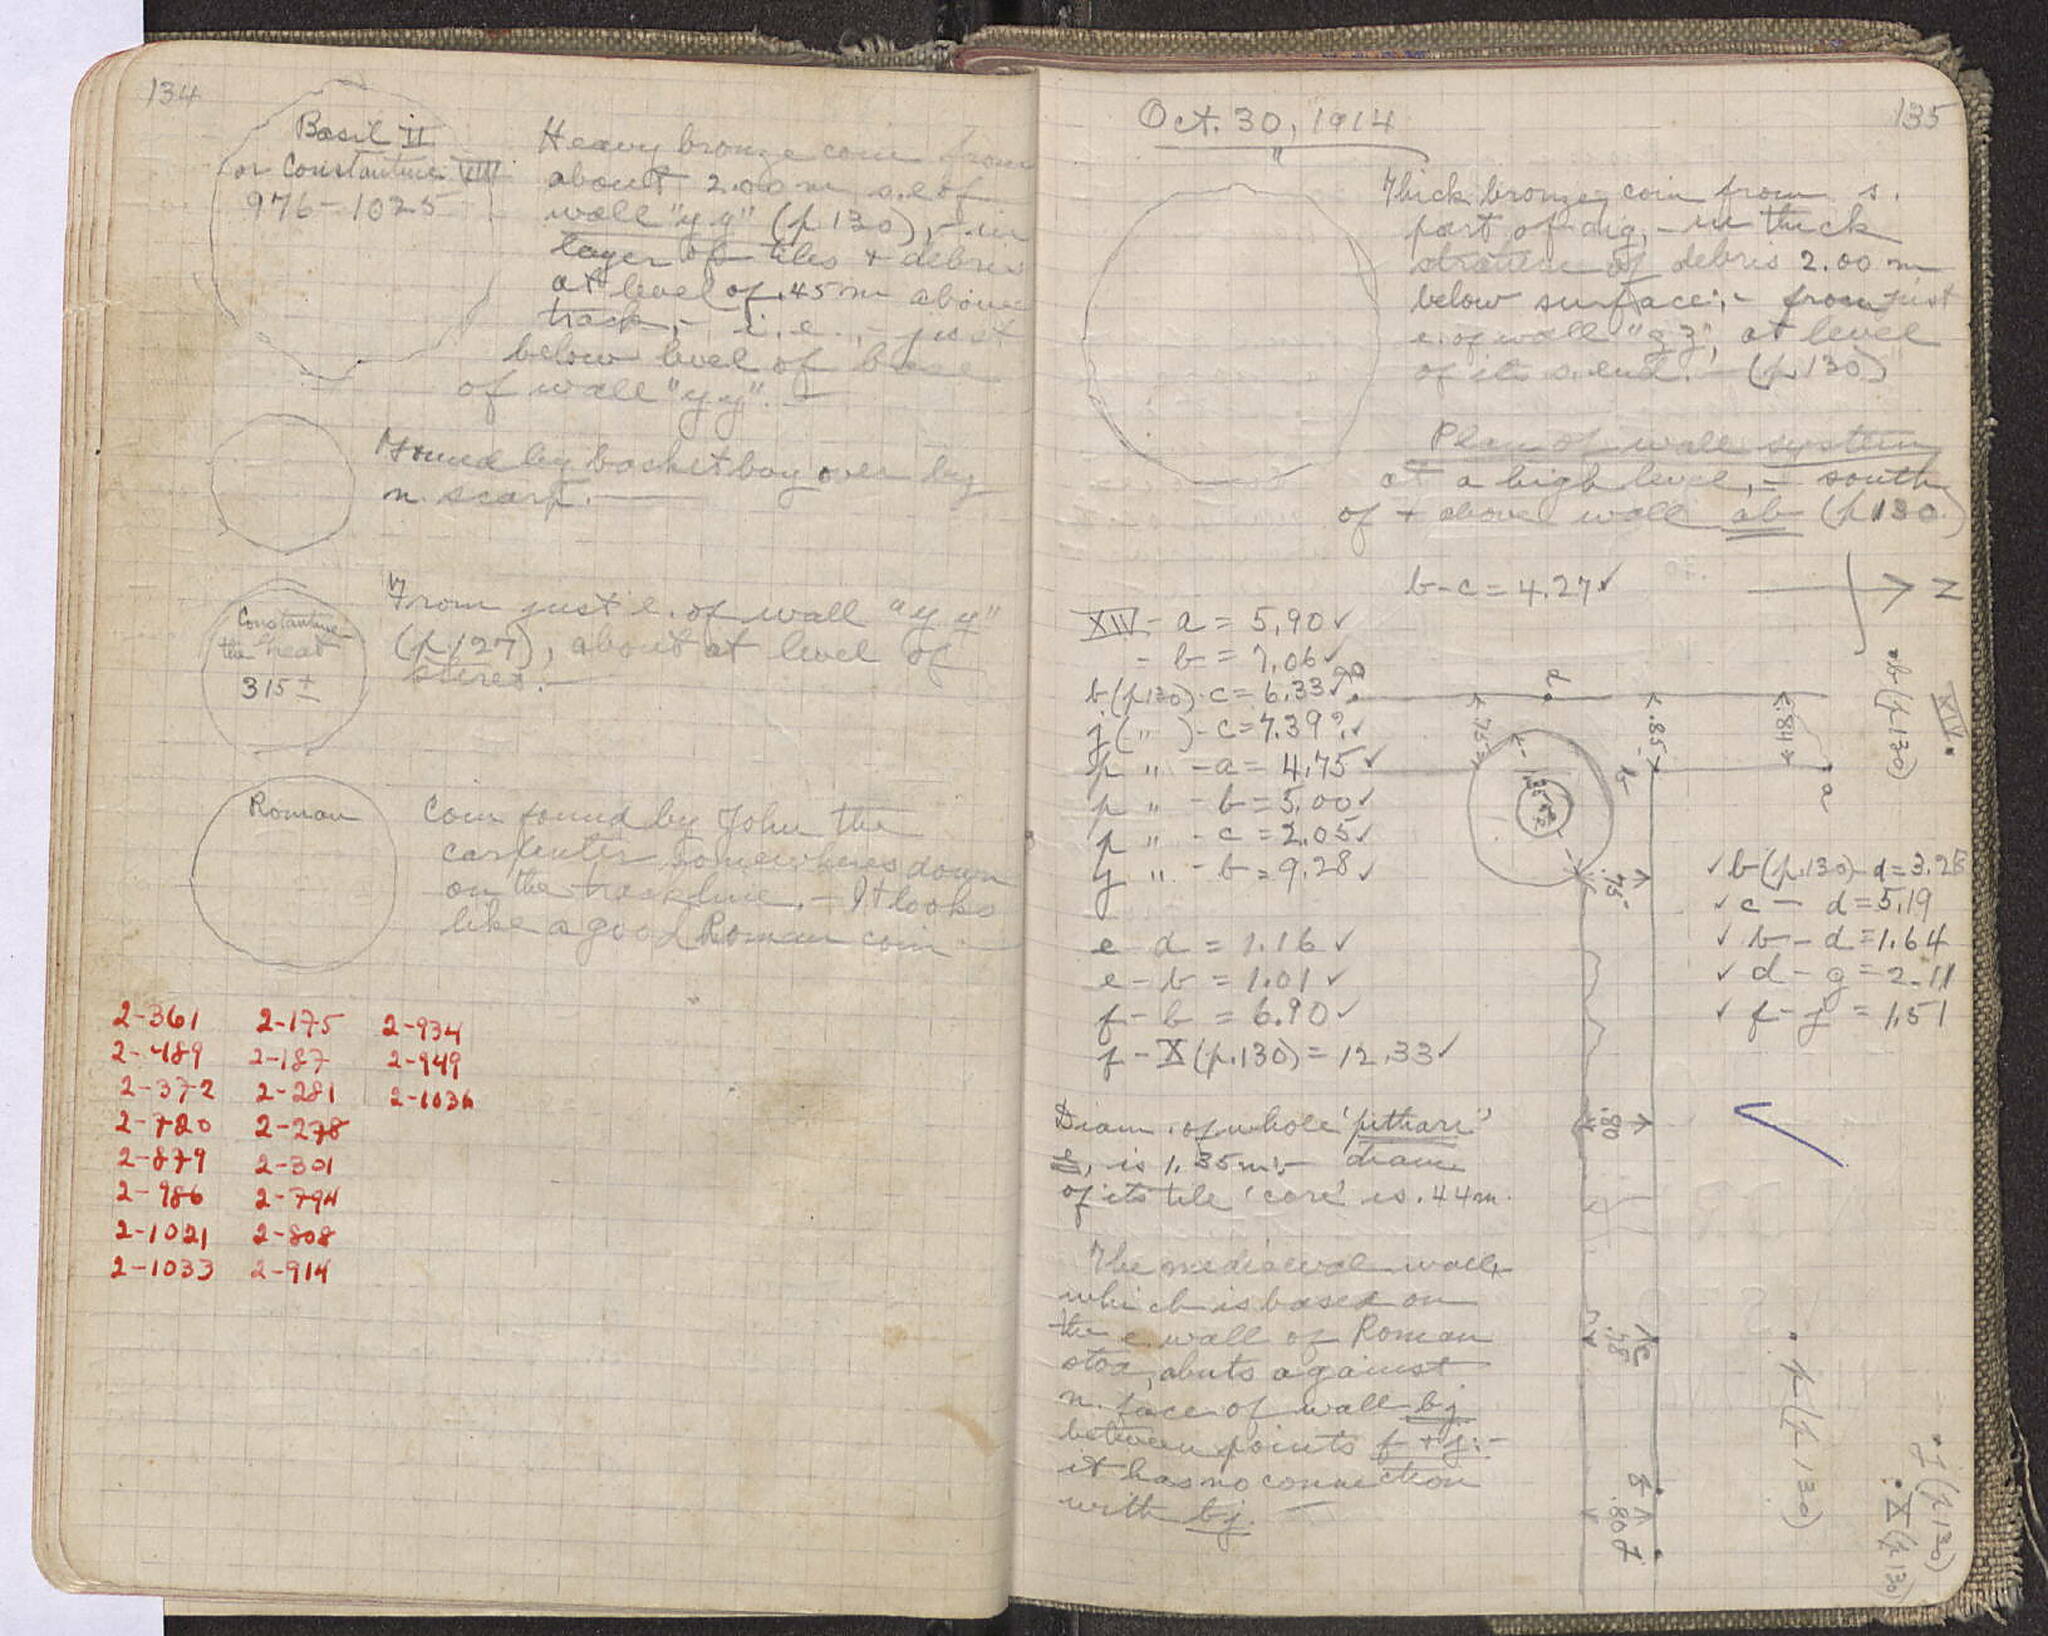 134
Basil II
or Constantine VIII
976-1025
Heavy bronze coin from
about 2.00 m s.e of
wall "yy" (p 130), - in
layer of tiles + debris
at level of .45 m above
track, - i.e., - just
below level of base
of wall "yy". -
Found by basket boy over by
n. scarp. -
Constantine
the Great
315 ±
From just e. of wall "yy"
(p 127), about at level of
Roman
Coin found by John the
carpenter somewheres down
on the track line. - It looks
like a good Roman coin -
2-361 2-175 2-934
2-489 2-187 2-949
2-372 2-281 2-1036
2-720 2-278
2-879 2-301
2-986 2-794
2-1021 2-808
2-1033 2-914
135
Oct. 30, 1914
"
Thick bronze coin from s.
part of dig, - in thick
stratum of debris 2.00 m
below surface; - from just
e. of wall "gz", at level
of its s. end. - (p 130)
Plan of wall system
at a high level, - south
of + above wall ab (p 130)
b-c = 4.27 ✓
N
XIV - a = 5.90 ✓
- b = 7.06 ✓
b (p 130) - c = 6.33 ✓
j ( " ) - c = 7.39? ✓
p " - a = 4.75 ✓
p " - b = 5.00 ✓
p " - c = 2.05 ✓
j " - b = 9.28 ✓
e d = 1.16 ✓
e - b = 1.01 ✓
f - b = 6.90 ✓
f - X (p. 130) = 12.33 ✓
.75
.85
.81
b
a
c
XIV
b (p 130)
.75
✓ b (p. 130) - d = 3.28
✓ c - d = 5.19
✓ b - d = 1.64
✓ d - g = 2.11
✓ f - j = 1.51
.80
Diam. of whole 'pithari'
e, is 1.35 m; - diam
of its tile 'core' is .44 m.
The mediaeval wall,
which is based on
the e. wall of Roman
stoa, abuts against
n. face of wall bj
between points f + j; -
it has no connection
with bj. -
.78
p (p 130)
.80
j (p 130)
X (p 130)